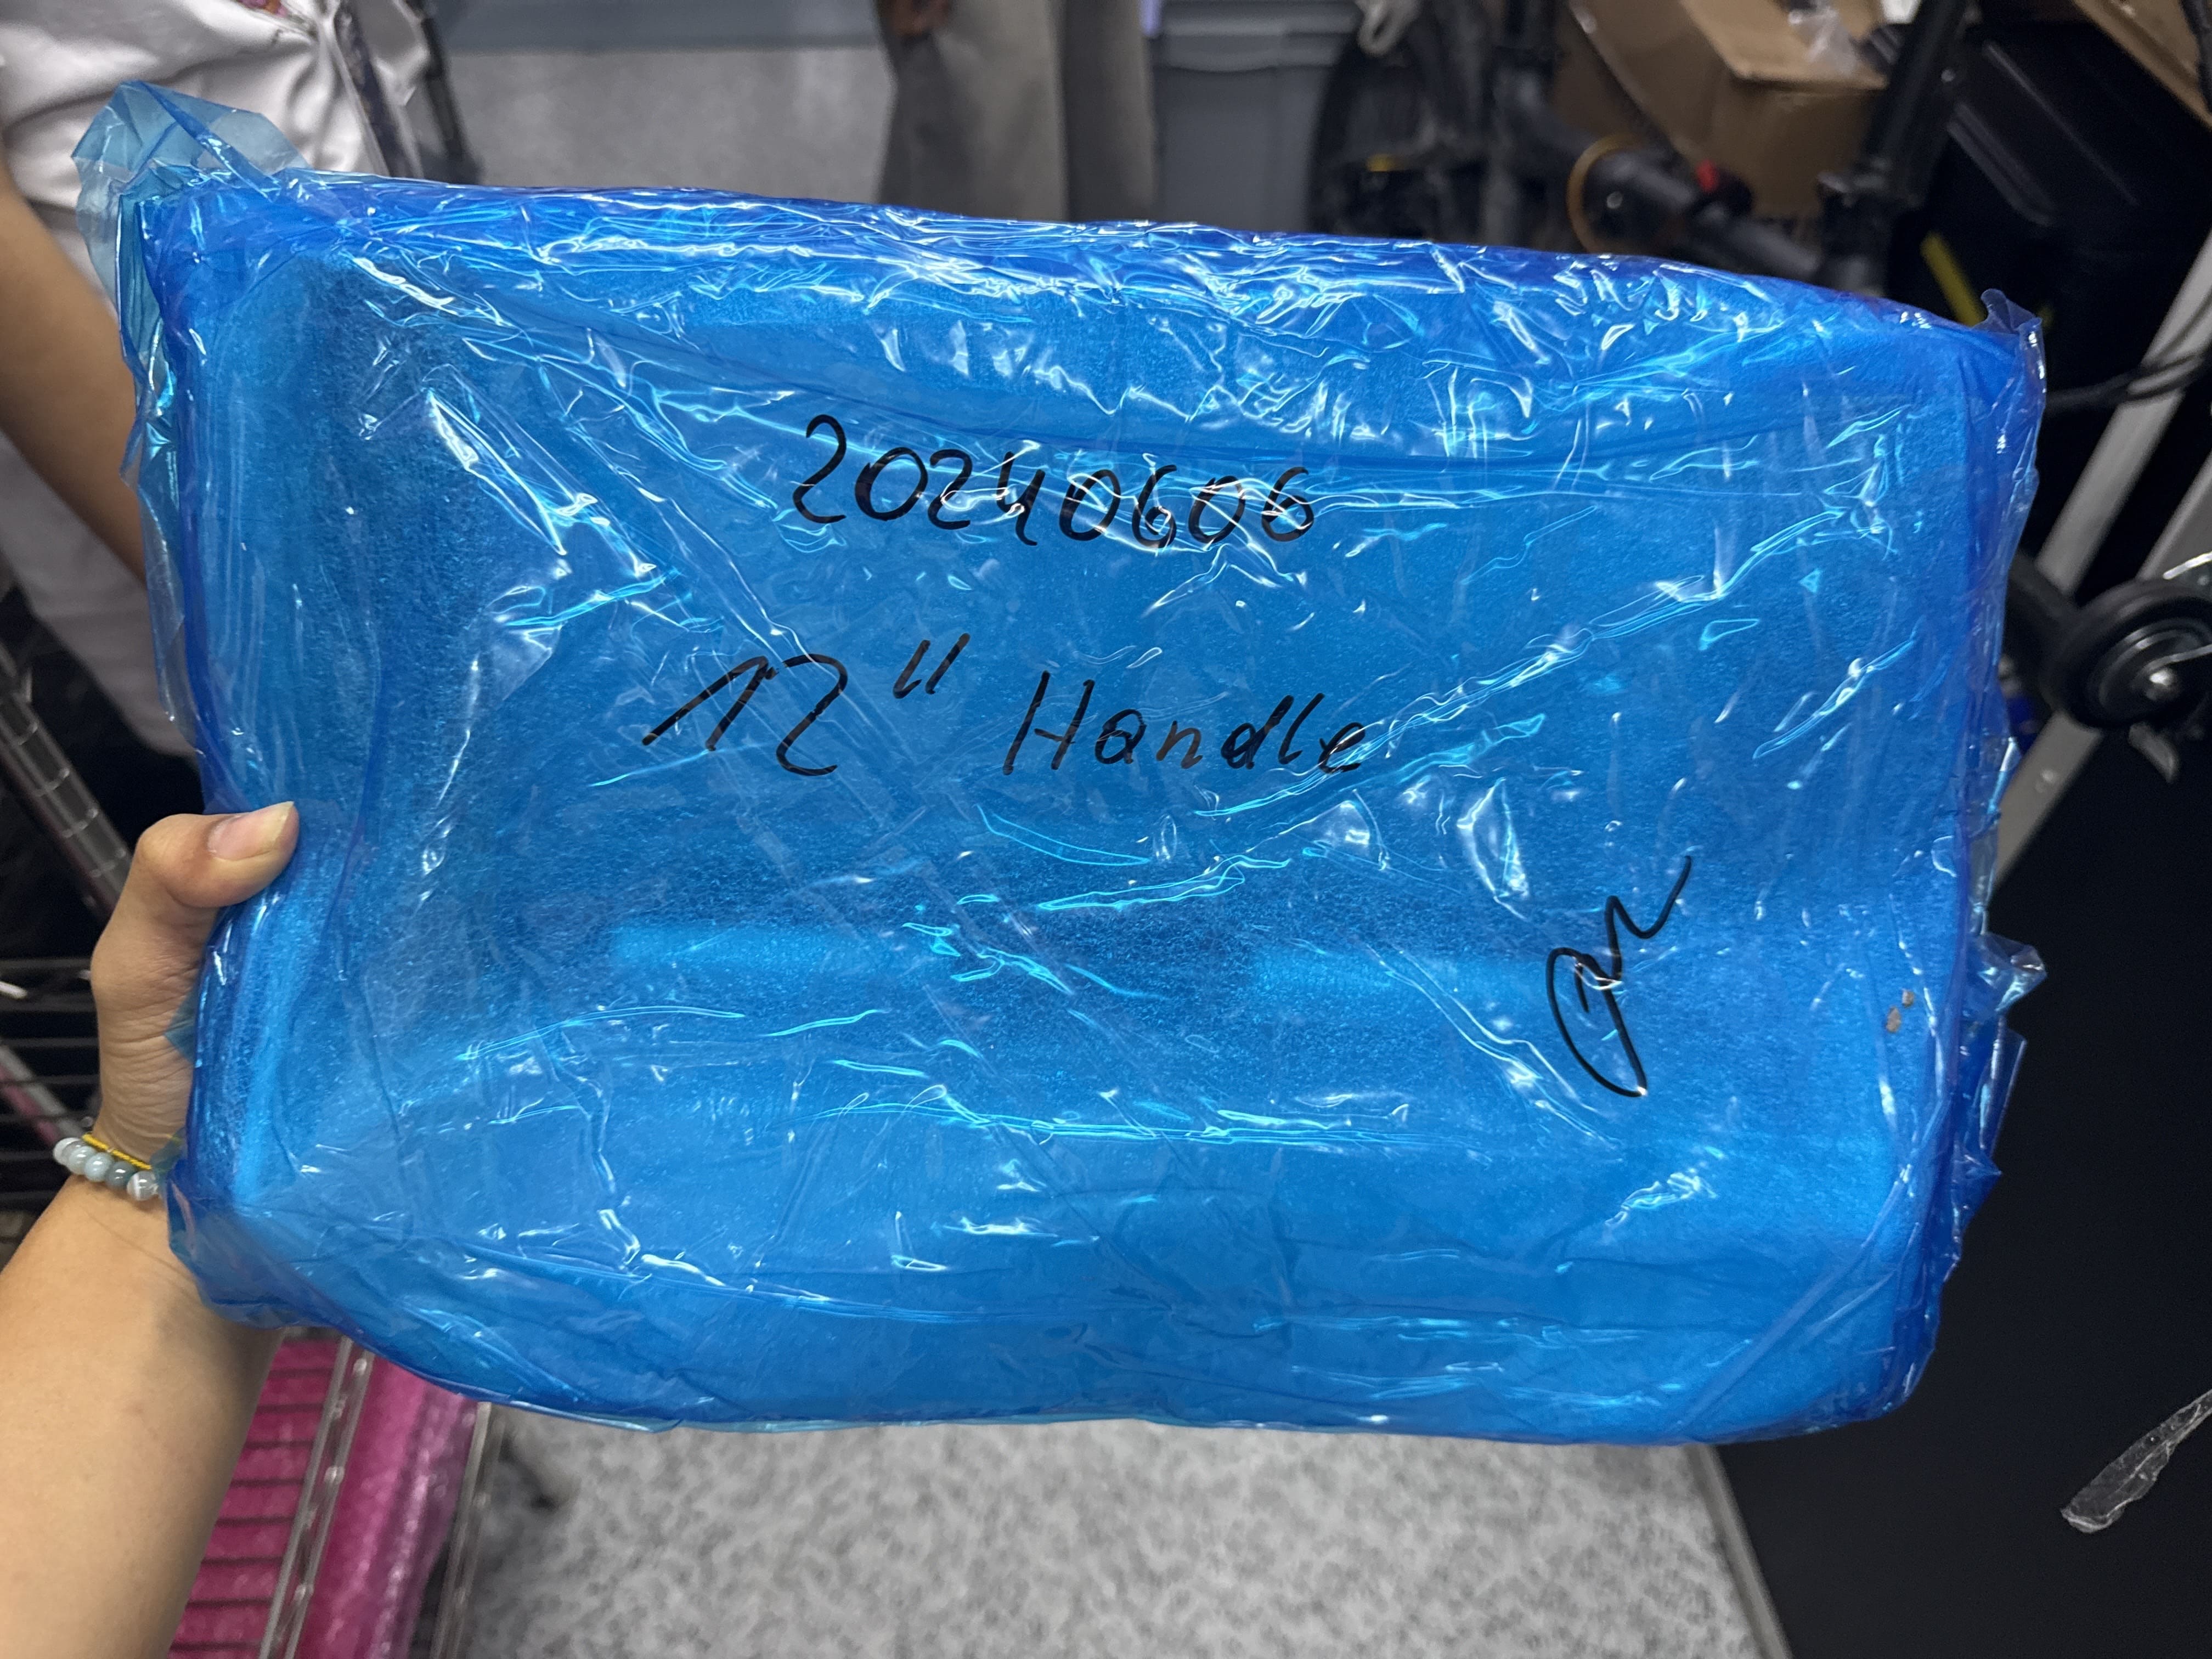 20240606
12" Handle